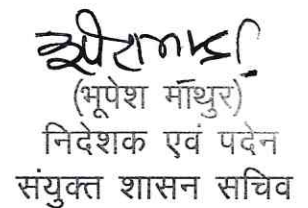 (भूपेश माँथुर)
निदेशक एवं पदेन
संयुक्त शासन सचिव